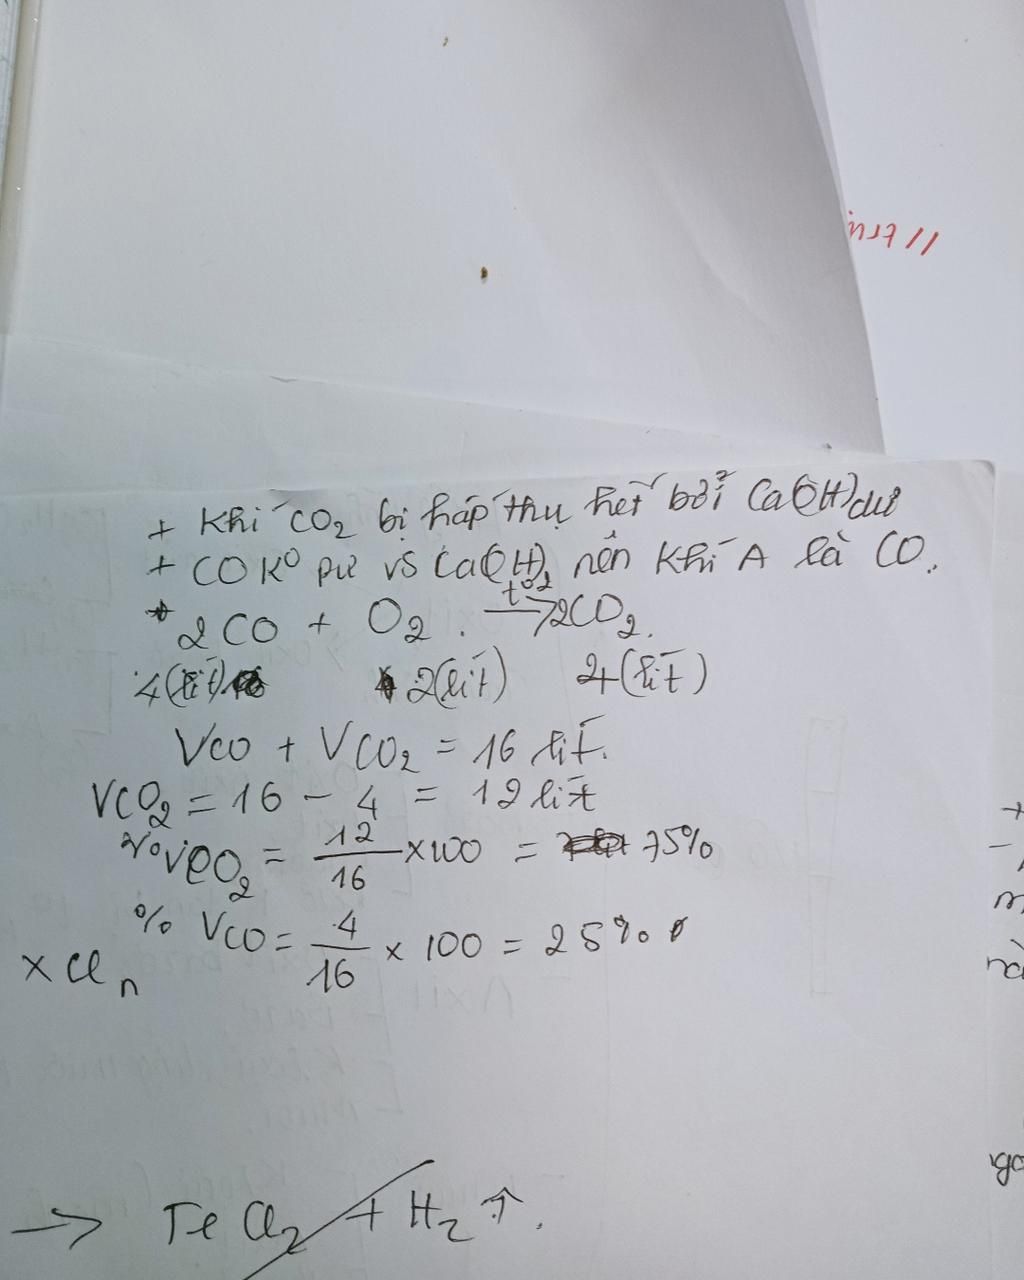 + Khí CO2 bị hấp thụ hết bởi Ca(OH)2 dư
+ CO Ko pư vs Ca(OH)2 nên Khí A là CO.
* 2CO + O2 . t° → 2CO2.
4(lít) 2(lít) 4(lít)
VCO + VCO2 = 16 lít.
VCO2 = 16 - 4 = 12 lít
%VCO2 = 12/16 × 100 = 75%
% VCO = 4/16 × 100 = 25%
XCln
→ FeCl2 + H2 ↑.